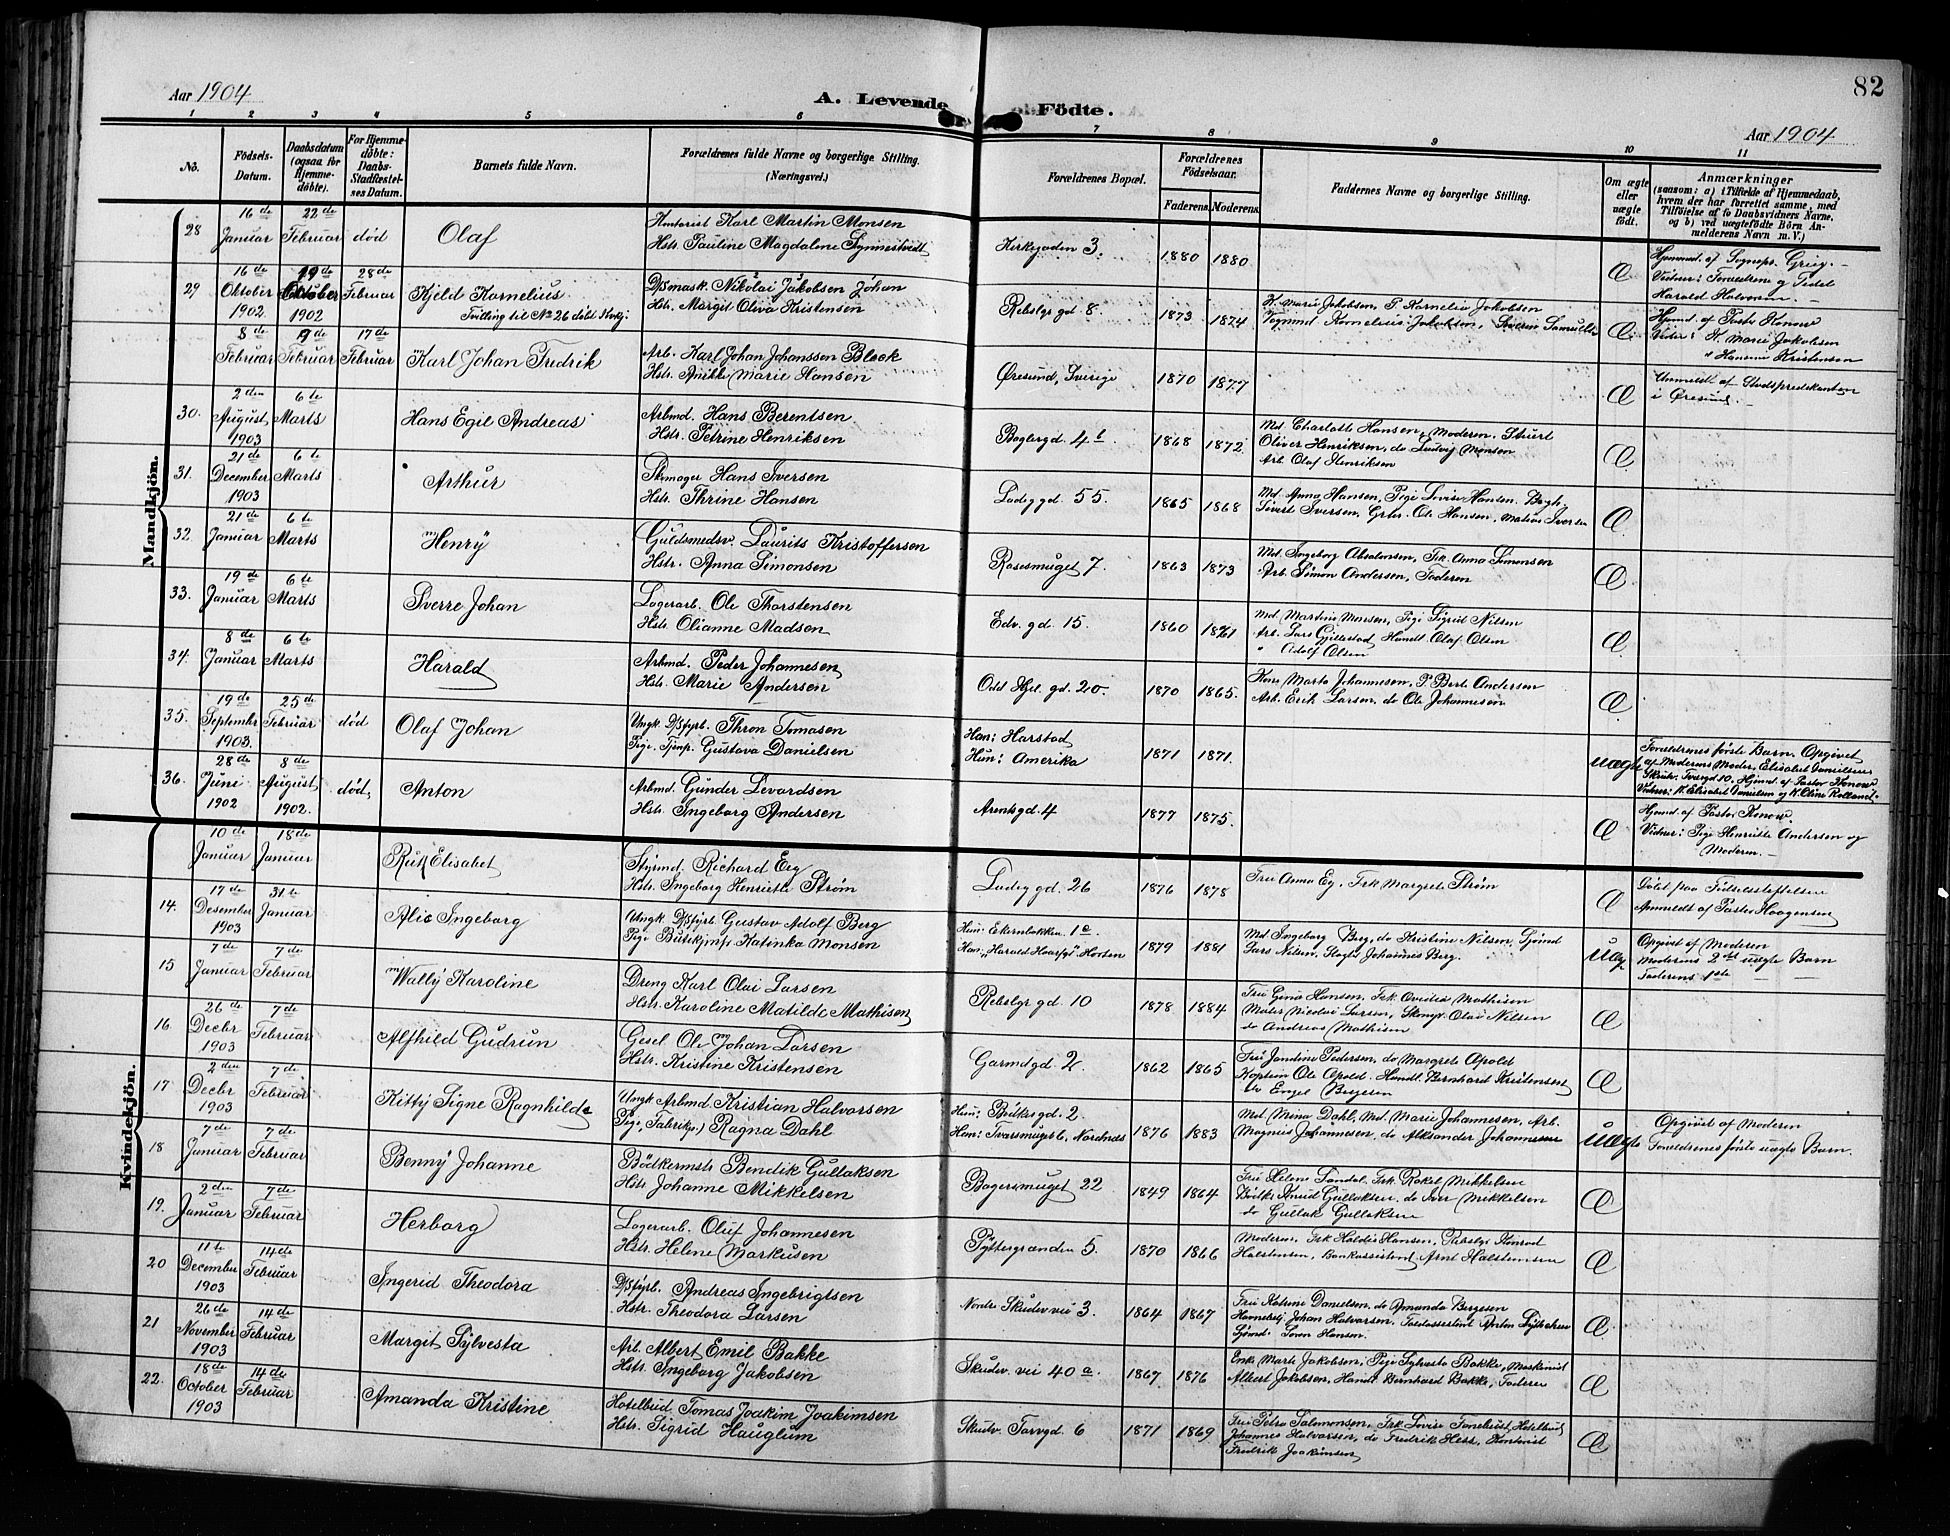 Aar 1904
A. Levende
Födte.
82
Aar 1904
1 2 3 4 5 6 7 8 9 10 11
No.
Födsels-
Datum.
Daabsdatum
(ogsaa for
Hjemme-
döbte).
For Hjemme-
döbte:
Daabs-
Stadfæstel-
ses Datum.
Barnets fulde Navn.
Forældrenes fulde Navne og borgerlige Stilling.
(Næringsvei.)
Forældrenes Bopæl.
Forældrenes
Födselsaar.
Faderens. Moderens.
Faddernes Navne og borgerlige Stilling.
Om ægte
eller
uægte
födt.
Anmærkninger
(saasom: a) i Tilfælde af Hjemmedaab,
hvem der har forrettet samme, med
Tilföielse af to Daabsvidners Navne.
og b) ved uægtefödte Börn An-
melderens Navn m. V.)
Mandkjön.
28 16de Januar 22de Februar død Olaf
Kontorist Karl Martin Monsen
Hstr. Pauline Magdalene Synnestvedt
Kirkegaden 3. 1880 1880 Æ
Hjemmed. af Sognepr. Grieg.
Harald Halvorsen
29 16de Oktober 1902 19de Oktober 1902 28de Februar Kjeld Kornelius
Tvilling til No 26 døbt Novbr.
D/Smask. Nikolai Jakobsen Johan
Hstr. Margit Oliva Kristensen
Rebslgr gd 8. 1873 1874
K. Marie Jakobsen, P. Kornelia Jakobsen
Vognmd Kornelius Jakobsen, Samuels
Æ
Hjemd. af Pastor Konow
Vidner: K. Marie Jakobsen
" Hansine Kristensen
8de Februar 9de Februar 17de Februar Karl Johan Fredrik
Arb. Karl Johan Johanssen Block
Hstr. Anikke Marie Hansen
Øresund, Sverige 1870 1877 Æ
Anmeldt af Stadspredikanten
i Øresund.
30. 2den August 1903 6te Marts Hans Egil Andreas
Arbmd. Hans Berentsen
Hstr. Petrine Henriksen
Baglergd. 4 1868 1872
Md. Charlotte Hansen, Moderen, Stuert
Oliver Henriksen, do Ludvig Monsen
Arb. Olaf Henriksen
Æ
31. 21de December 1903 6te Marts Arthur
Skomager Hans Iversen
Hstr. Thrine Hansen
Ladeg gd 55. 1865 1868
Md. Anna Hansen, Pige Lovise Hansen
Sivert Iversen, Ole Hansen, Matias Iversen
Æ
32. 21de Januar 6te Marts Henry
Guldsmedsv. Laurits Kristoffersen
Hstr. Anna Simonsen
Rosesmuget 7. 1863 1873
Md. Ingeborg Absalonsen, Frk Anna Simonsen
Arb. Simon Andersen, Faderen
Æ
33. 19de Januar 6te Marts Sverre Johan
Lagerarb. Ole Thorstensen
Hstr. Olianne Madsen
Edv. gd. 15. 1860 1861
Md. Martine Monsen, Pige Sigrid Nilsen
Arb. Lars Gjellestad, Handl. Olaf Olsen
" Adolf Olsen
Æ
34. 8de Januar 6te Marts Harald
Arbmd. Peder Johannesen
Hstr. Marie Andersen
Odd Hjel. gd. 20. 1870 1865.
Kone Marta Johannesen, P. Berte Andersen
Arb. Erik Larsen, do Ole Johannesen
Æ
35. 19de September 1903. 25de Februar død Olaf Johan
Ungk. D/Sfyrb. Thron Tomasen
Pige, Tjenp. Gustava Danielsen
Han: Harstad
Hun: Amerika
1871 1871. uægte
Forældrenes første Barn. Opgivet
af Moderens Moder, Elisabet Danielsen
Skutv. Torvgd 10. Hjemd. af Pastor Konow
Vidner: K. Elisabet Danielsen og K. Oline Rolland.
36. 28de Juni 1902 8de August 1902. død, Anton
Arbmd. Gunder Levardsen
Hstr. Ingeborg Andersen
Arentsgd. 4 1877 1875. Æ
Hjemd. af Pastor Konow.
Vidner: Pige Henriette Andersen og
Moderen.
Kvindekjön.
10de Januar 18de Januar Rut Elisabet
Styrmd. Richard Eeg
Hstr. Ingeborg Henriette Strøm
Ladeg gd. 26 1876 1878
Fru Anna Eg, Frk Margrete Strøm
Æ
Døbt paa Fødselsstiftelsen
Anmeldt af Pastor Haagensen
14. 17de Desember 1903 31te Januar Alie Ingeborg
Ungk. D/Sfyrb. Gustav Adolf Berg
Pige Butikjmf. Katinka Monsen
Hun: Ekernbakken 1a.
Han: "Harald Haarfgr" Horten
1879 1881
Md Ingeborg Berg, do Kristine Nilsen, Sjømd
Lars Nilsen, Slagter Johannes Berg.
Uæg
Opgivet af Moderen
Moderens 2det uægte Barn
Faderens 1ste
15 7de Januar 7de Februar Wally Karoline
Dreng Karl Olai Larsen
Hstr. Karoline Matilde Mathisen
Rebslgr gd. 10 1878 1884
Fru Gina Hansen, Frk. Ovidia Mathisen
Maler Nicolai Larsen, Skomgr. Olai Nilsen
do Andreas Mathisen
Æ
16. 26de Decbr 1903 7de Februar Alfhild Gudrun
Gesel Ole Johan Larsen
Hstr. Kristine Kristensen
Garmd gd. 2. 1862 1865
Fru Jandine Pedersen, do Margrete Apold
Kaptein Ole Apold. Handl. Bernhard Kristensen
do Engel Bergesen
Æ
17. 2den Decbr 1903 7de Februar Kitty Signe Ragnhilde
Ungk Arbmd. Kristian Halvorsen
Pige, Fabrikp.) Ragna Dahl
Hun: Bødkergd. 2.
Han: Tvarsmuget 6, Nordnes
1876 1883
Md. Mina Dahl, Md. Marie Johannesen, Arb.
Magnus Johannesen, do Aleksander Johannesen
uægte
Opgivet af Moderen
Forældrenes første uægte Barn.
18 7de Januar 7de Februar Benny Johanne
Bødkermstr Bendik Gullaksen
Hstr. Johanne Mikkelsen
Bagersmuget 22 1849 1864
Fru Helene Sandal, Frk. Rakel Mikkelsen
Amund Gullaksen, do Iver Mikkelsen
do Gullak Gullaksen
Æ
19. 2den Januar 7de Februar Herborg
Lagerarb. Oluf Johannesen
Hstr. Helene Markusen
Pyttergrænden 5. 1870 1866
Moderen, Frk Haldis Hansen, Rebslgr Konrad
Halstensen, Bankassistent Arnt Halstensen
Æ
20 11te December 1903 14de Februar Ingerid Theodora
D/Sfyrb. Andreas Ingebrigtsen
Hstr. Theodora Larsen
Nordre Skudev vei 3. 1864 1867
Fru Katrine Danielsen, do Amanda Bergesen
Johan Halvorsen,
Sjømd. Søren Hansen.
Æ
21 26de November 1903 14de Februar Margit Sylvesta
Arb. Albert Emil Bakke
Hstr. Ingeborg Jakobsen
Skudev. vei 40 a. 1867. 1876
Enke Marte Jakobsen, Pige Sylvesta Bakke, Maskinist
Albert Jakobsen, Handl Bernhard Bakke, Faderen
Æ
22. 18de October 1903 14de Februar Amanda Kristine
Hotelbud Tomas Joakim Joakimsen
Hstr. Sigrid Hauglum
Skutv. Torvgd. 6 1871 1869
Fru Petra Salmonsen, Frk. Lovise Hotelbud
Johannes Halvorsen, do Fredrik Hess, Kontorist
Fredrik Joakimsen
Æ